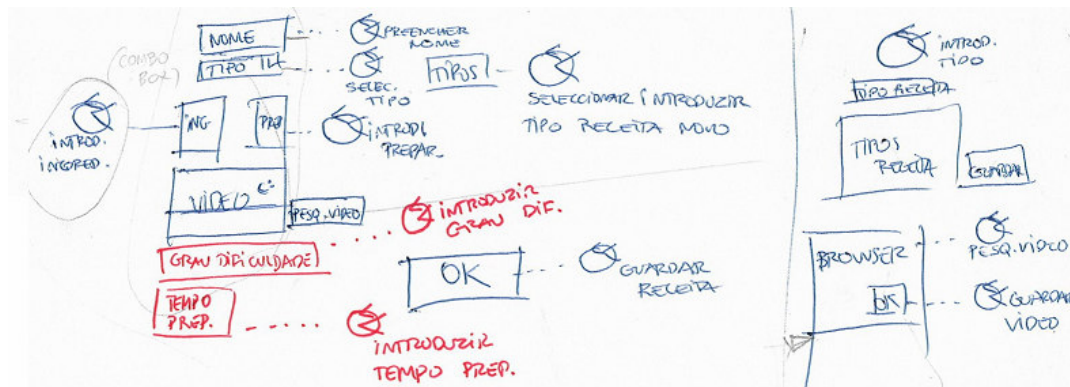 NOME
PREENCHER
NOME
(COMBO
BOX)
TIPO
SELEC.
TIPO
TIPOS
SELECCIONAR / INTRODUZIR
TIPO RECEITA NOVO
INTROD.
INGRED.
ING
PREP
INTROD/
PREPAR.
VIDEO
PESQ. VIDEO
INTRODUZIR
GRAU DIF.
GRAU DIFICULDADE
OK
GUARDAR
RECEITA
TEMPO
PREP.
INTRODUZIR
TEMPO PREP.
INTROD.
TIPO
TIPO RECEITA
TIPOS
RECEITA
GUARDAR
BROWSER
PESQ. VIDEO
OK
GUARDAR
VIDEO